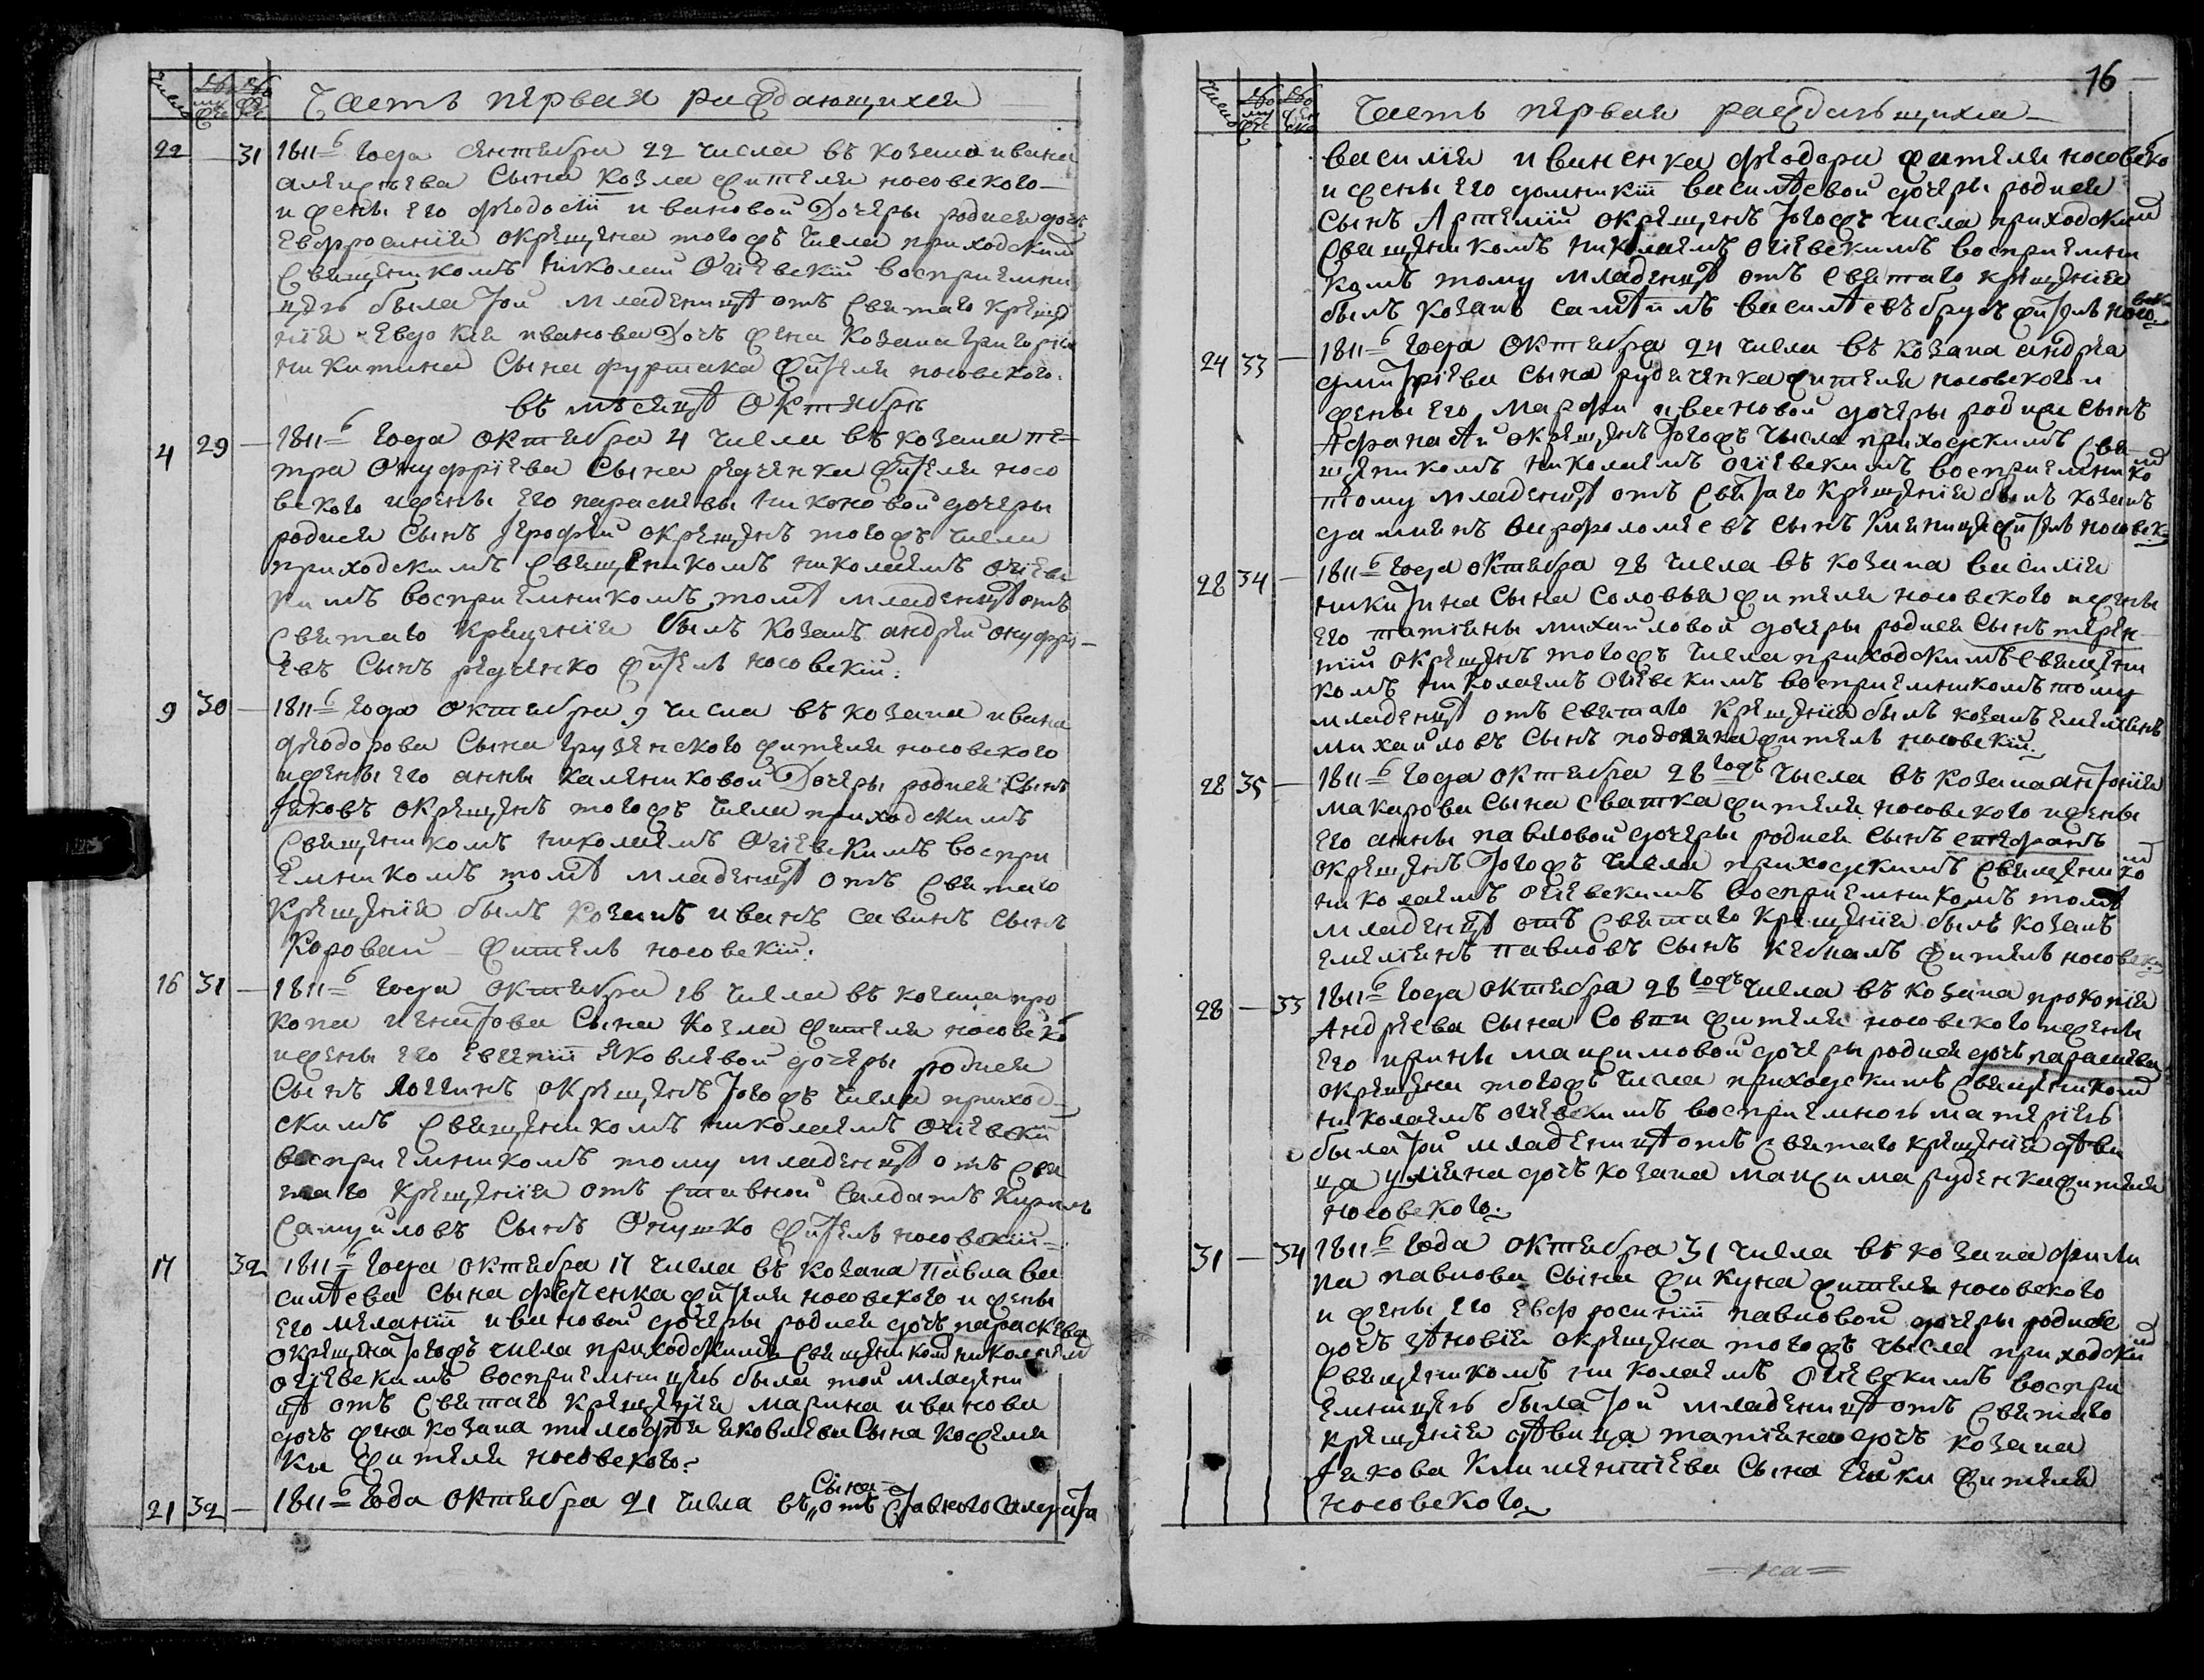 Число
Часть первая раждающихся
22 31 1811 года сентября 22 числа въ козака ивана
алексѣева Сына козла жителя носовского
и жены его феодосіи ивановой Дочеры родися дочь
Евфросинія окрещена тогожъ числа приходским
Священикомъ николай Огіевскій восприемни
цею была той младеницѣ отъ Святаго креще
нія Евдокія иванова Дочь жена козака григорія
никитина Сына фурмака жителя носовского.
въ мѣсяцѣ Октябрѣ
4 29 1811 года октября 4 числа въ козака пе-
тра Онуфріева Сына редченка жителя носо
вского и жены его параскевы никоновой дочеры
родися Сынъ Іерофей окрещенъ тогожъ числа
приходскимъ Священикомъ николаемъ огіевс
кимъ восприемникомъ томѣ младенцѣ отъ
Святаго крещенія былъ козакъ андрей онуфрі-
евъ Сынъ редченко житель носовскій.
9 30 1811 года Октября 9 числа въ козака ивана
феодорова Сына грузенского жителя носовского
и жены его анны калениковой Дочеры родися Сынъ
Іаковъ окрещенъ тогожъ числа приходскимъ
Священикомъ николаемъ Огіевскимъ воспри
емникомъ томѣ младенцѣ отъ Святаго
крещенія былъ козакъ иванъ савинъ сынъ
Коровай житель носовскій.
16 31 1811 года октября 16 числа въ козака про
копа игнатова Сына козла жителя носовско
и жены его евгеніи яковлевой дочеры родися
Сынъ логгинъ окрещенъ тогожъ числа приход-
скимъ Священикомъ николаемъ огіевскі
восприемникомъ тому младенцѣ отъ Свя
таго крещенія отъ Ставной Салдатъ Кирилъ
Самуйловъ Сынъ Онушко житель носовскій
17 32 1811 года октября 17 числа въ козака павла ва
силѣева сына федченка жителя носовского и жены
его меланіи ивановой дочеры родися дочь параскева
окрещена тогожъ числа приходскимъ священиком николаем
огіевскимъ восприемницею была той младени
цѣ отъ Святаго крещенія марина иванова
дочь жена козака тимофѣя яковлева Сына кожемя
ки жителя носовского.
Сына
21 32 1811 года октября 21 числа въ отъ Ставного салдата
16
Число
Часть первая раждающихся
василія иваненка феодора жителя носовско
и жены его домникіи василѣевой дочеры родися
Сынъ Артемій окрещенъ тогожъ числа приходским
Священикомъ николаемъ огіевскимъ восприемни
комъ тому младенцѣ отъ святаго крещенія
былъ козакъ василѣевъ житель носо
24 33 1811 года Октября 24 числа въ козака андрея
дмитріева сына рудченка жителя носовского и
жены его марфи ивановой дочеры родися сынъ
Афанасѣй окрещенъ тогожъ числа приходскимъ Свя
щеникомъ николаемъ огіевскимъ восприемнико
тому младенцѣ отъ Святаго крещенія былъ козакъ
даміянъ варфоломіевъ сынъ житель носовск
28 34 1811 года октября 28 числа въ козака василія
никитина сына соловья жителя носовского и жены
его татіяны михайловой дочеры родися сынъ терен
тій окрещенъ тогожъ числа приходскимъ Священи
комъ николаемъ огіевскимъ восприемникомъ тому
младенцѣ отъ святаго крещенія былъ козакъ емеліянъ
михайловъ сынъ житель носовскій.
28 35 1811 года октября 28 тогожъ числа въ козака антонія
макарова сына сватка жителя носовского и жены
его анны павловой дочеры родися сынъ стефанъ
окрещенъ тогожъ числа приходскимъ Священико
николаемъ огіевскимъ восприемникомъ томѣ
младенцѣ отъ святаго крещенія былъ козакъ
емеліянъ павловъ сынъ житель носовскі
28 33 1811 года октября 28 тогожъ числа въ козака прокопія
Андреева сына Совпи жителя носовского и жены
его ирины максимовой дочеры родися дочь параскева
окрещена тогожъ числа приходскимъ Священиком
николаемъ огіевскимъ восприемною матерію
была той младеницѣ отъ святаго крещенія дѣви
ца уліяна дочь козака максима руденка жителя
носовского.
31 34 1811 года октября 31 числа въ козака фили
па павлова Сына жикуна жителя носовского
и жены его Евфросиніи павловой дочеры родися
дочь зѣновія окрещена тогожъ числа приходски
Священикомъ николаемъ Огіевскимъ воспри
емницею была той младеницѣ отъ Святаго
крещенія дѣвица татіяна дочь козака
Іакова климентіева Сына жителя
носовского.